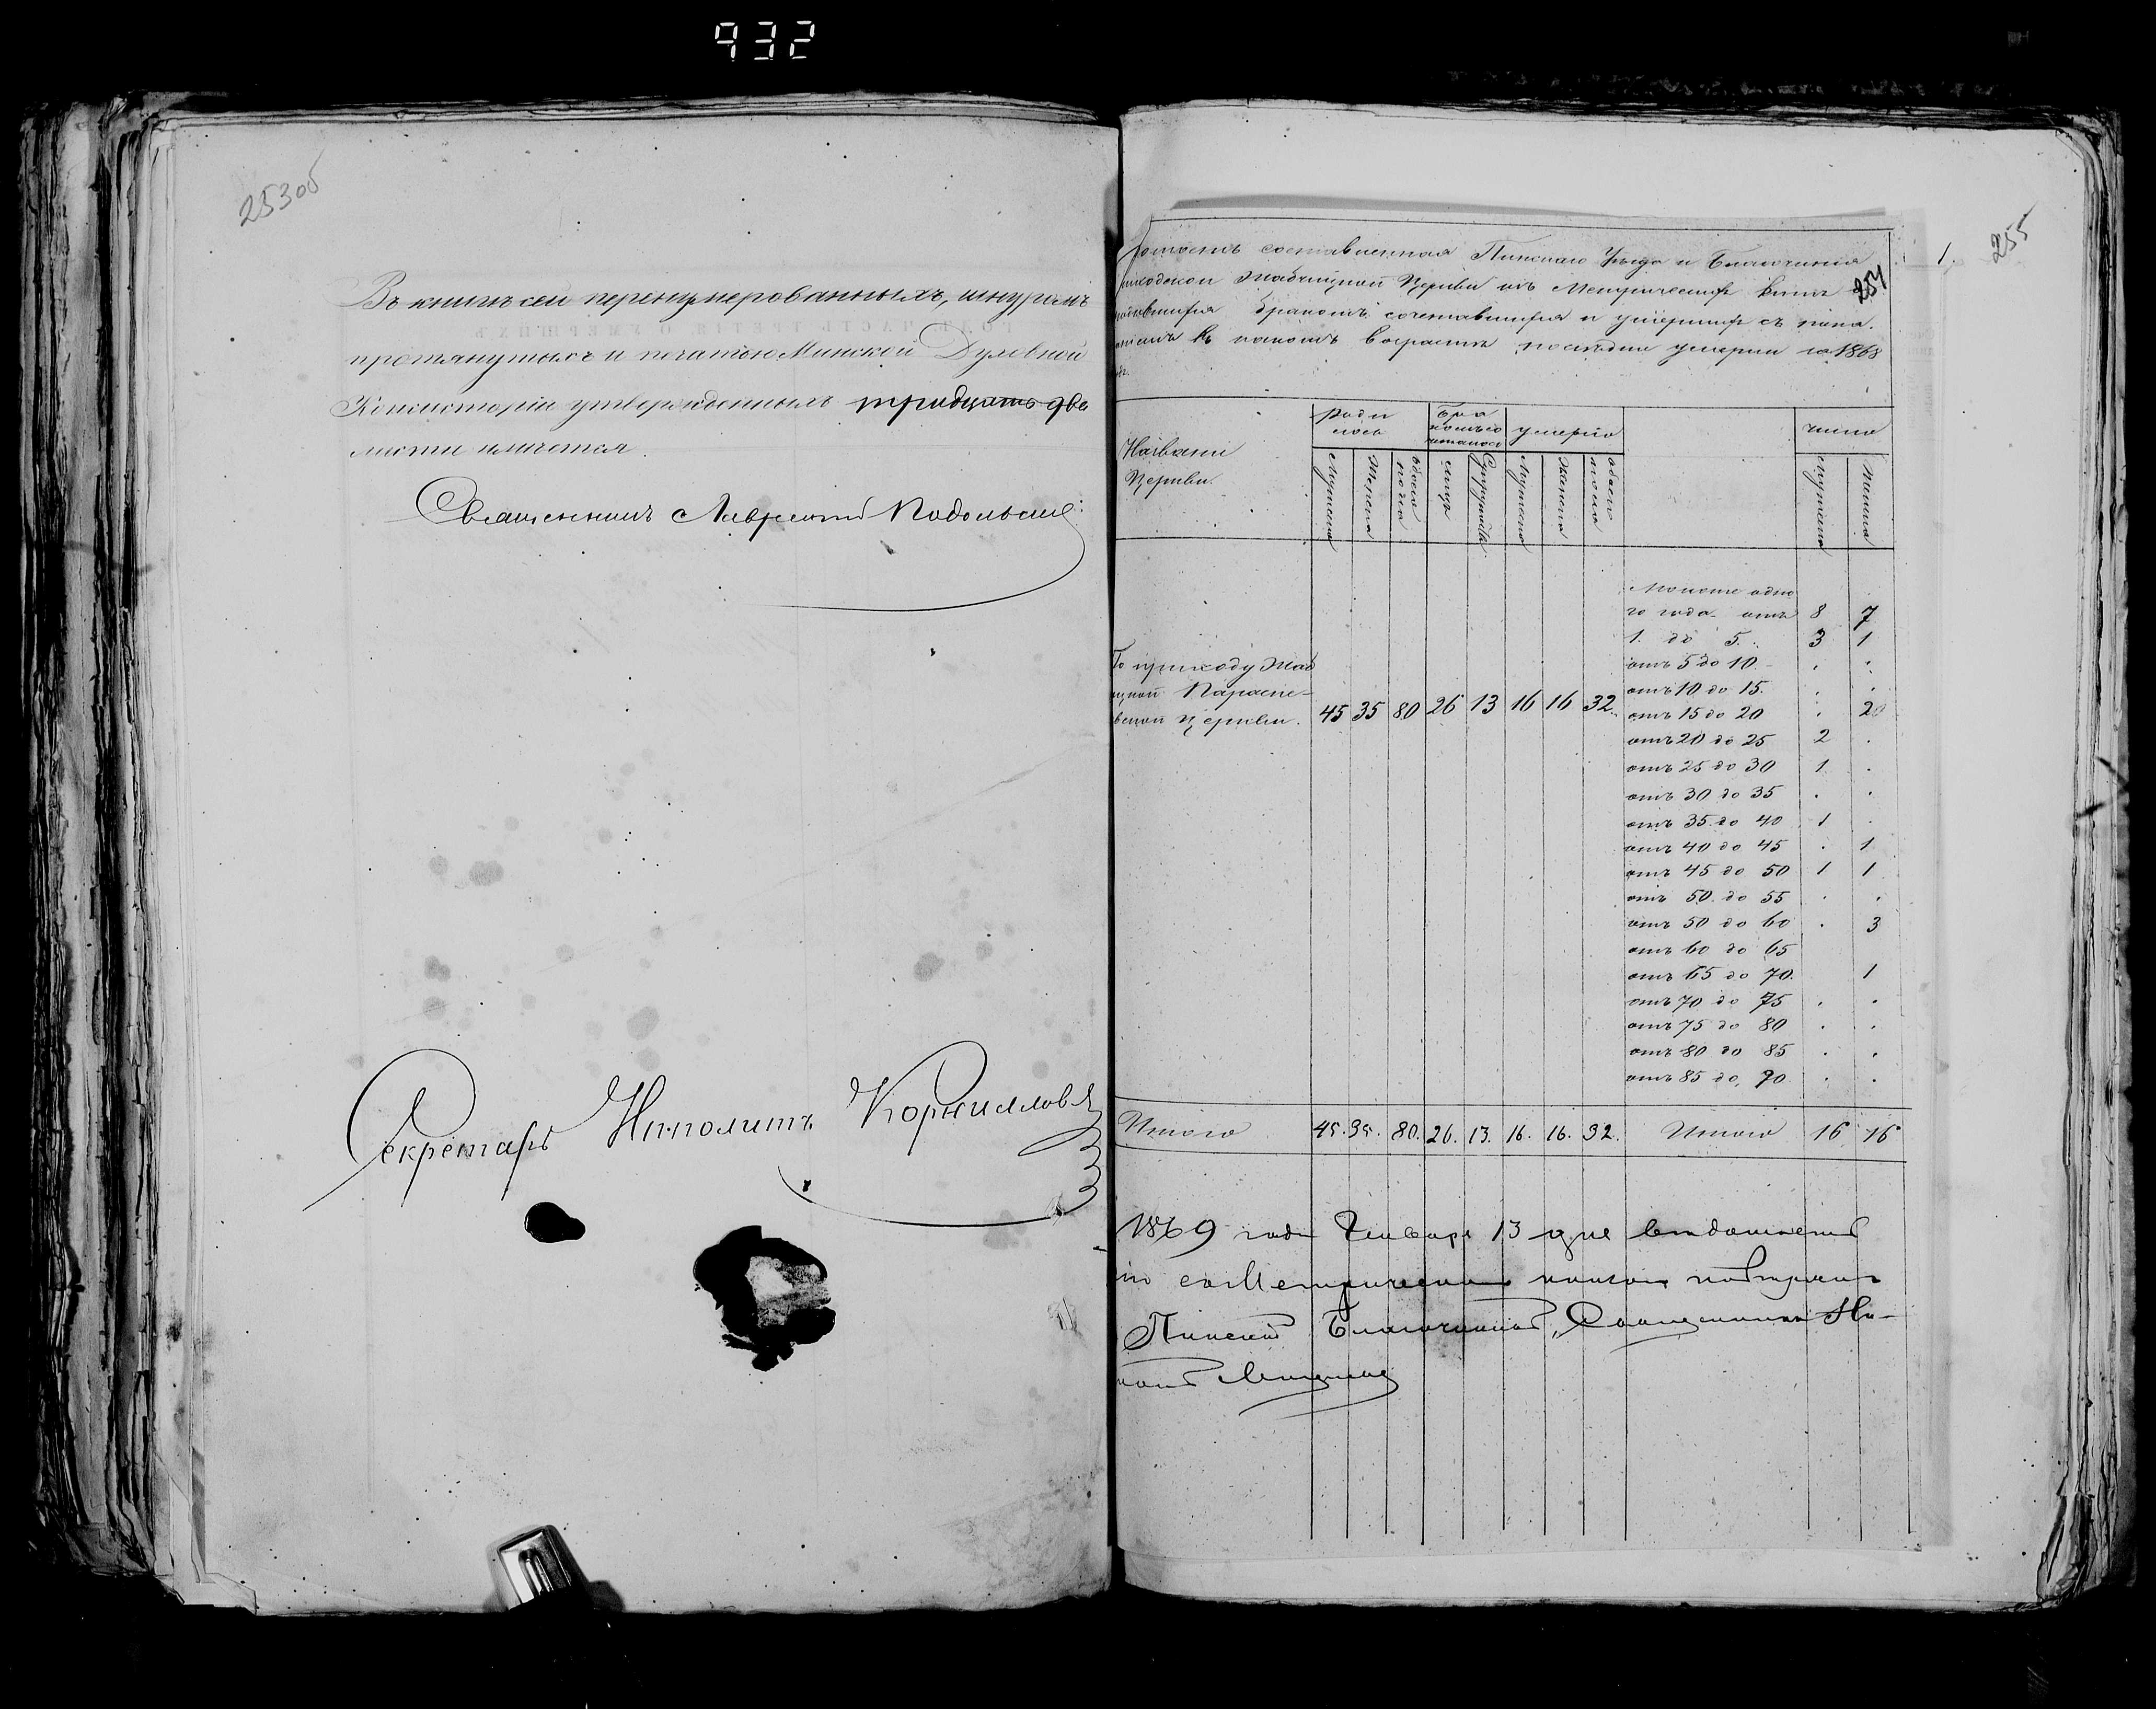 932
253об
Въ книгѣ сей перенумерованныхъ, шнуромъ
протянутыхъ и печатью Минской Духовной
Консисторіи утвержденныхъ тридцать два
листа имѣется.
Священникъ Лаврентій Подольскій
Секретарь Ипполитъ Корнилловъ
255
1.
254
составленная Пинскаго Уѣзда и Благочинія
Церкви изъ Метрическихъ книгъ
бракомъ сочетавшихся и умершихъ съ пока
въ какомъ возрастѣ последніи умерли за 1868
Названіе Церкви.
роди лось
Бра комъ со четалось
умерло
число
Мужеска
Женска
обоего пола
лицъ
Супружествъ
Мужеска
Женска
обоего пола
Мужеска
Женска
Моложе одно
го года отъ 8 7
1. до 5. 3 1
По приходу Жаб
Параске-
вской Церкви. 45 35 80 26 13 16 16 32
отъ 5 до 10 . .
отъ 10 до 15. . .
отъ 15 до 20 . 2
отъ 20 до 25 2 .
отъ 25 до 30 1 .
отъ 30 до 35 . .
отъ 35 до 40 1 .
отъ 40 до 45 . 1
отъ 45 до 50 1 1
отъ 50 до 55 . .
отъ 50 до 60 . 3
отъ 60 до 65
отъ 65 до 70. 1
отъ 70 до 75 . .
отъ 75 до 80 . .
отъ 80 до 85 . .
отъ 85 до 70 . .
Итого 45. 35. 80. 26. 13. 16. 16. 32. Итого 16 16
1869 года Января 13 дня
Пинскій Благочинный, Священникъ